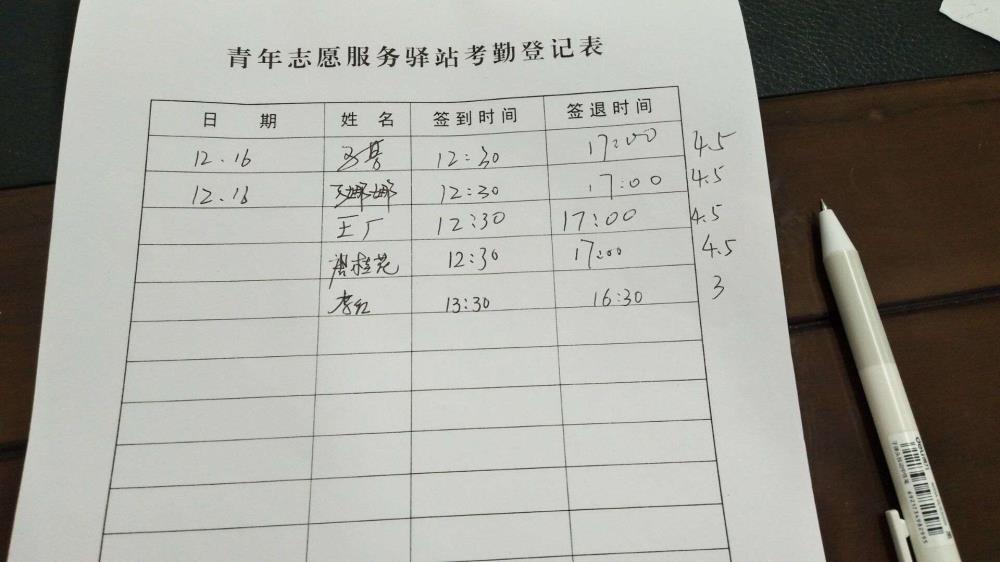 青年志愿服务驿站考勤登记表
日 期 姓 名 签到时间 签退时间
12.16 12:30 17:00 4.5
12.16 娜娜 12:30 17:00 4.5
王厂 12:30 17:00 4.5
桂花 12:30 17:00 4.5
李红 13:30 16:30 3